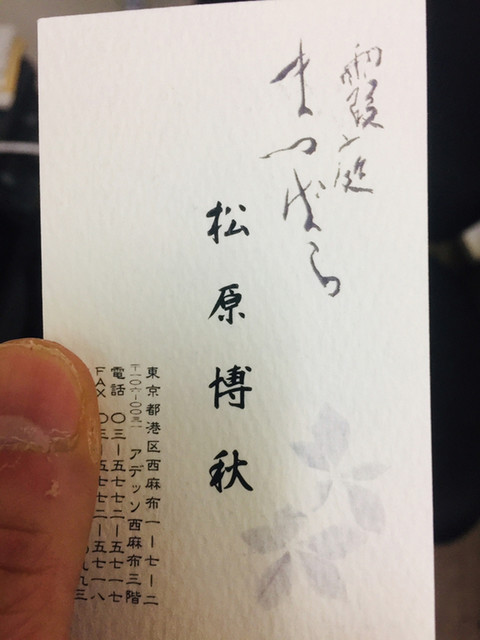 霞ノ庭
まつばら
松原博秋
東京都港区西麻布一-七-二
〒一〇六-〇〇三一 アデッソ西麻布三階
電話 〇三-五七七二-五七一七
FAX 〇三-五七七二-五七一八
九九三